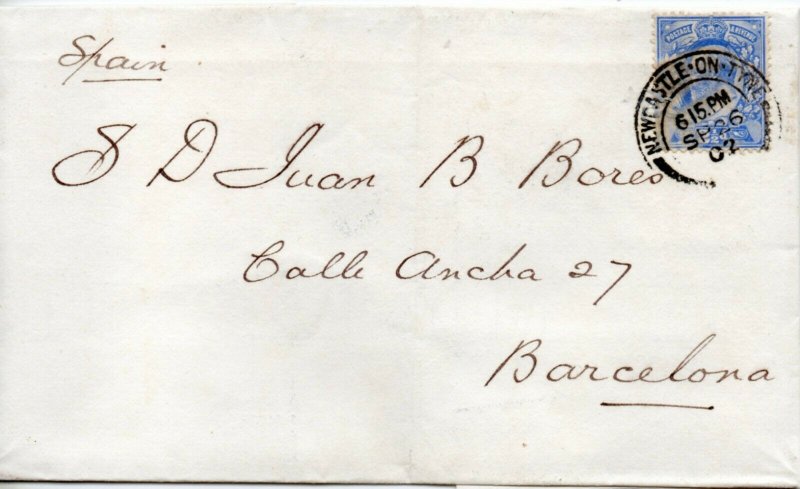 Spain
POSTAGE & REVENUE
NEWCASTLE·ON·TYNE
6 15.PM
SP 26
02
S D Juan B Bores
Calle Ancha 27
Barcelona